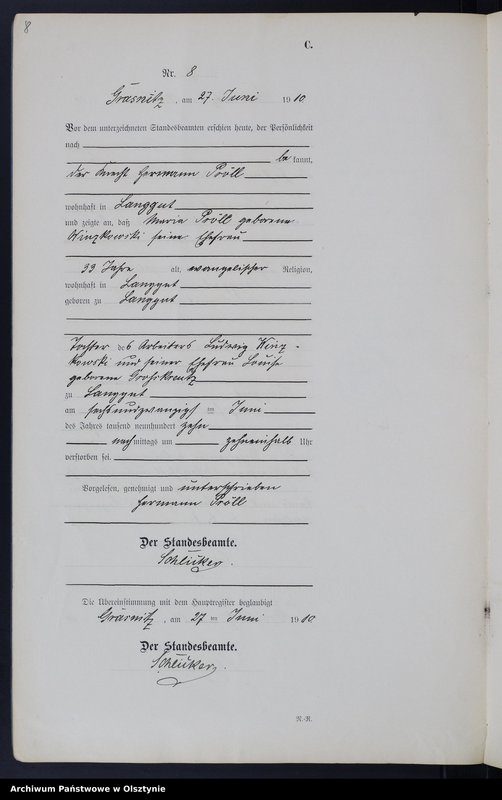 8
C.
Nr. 8
Grasnitz, am 27. Juni 1910.
Vor dem unterzeichneten Standesbeamten erschien heute, der Persönlichkeit
nach
be kannt,
der Knecht Hermann Pröll
wohnhaft in Langgut
und zeigte an, daß Maria Pröll geborene
Winzkowski seine Ehefrau
33 Jahre alt, evangelischer Religion,
wohnhaft in Langgut
geboren zu Langgut
Tochter des Arbeiters Ludwig Winz-
kowski und seiner Ehefrau Louise
geborene
zu Langgut
am sechsundzwanzigsten Juni
des Jahres tausend neunhundert zehn
nachmittags um zehneinhalb Uhr
verstorben sei.
Vorgelesen, genehmigt und unterschrieben
Hermann Pröll
Der Standesbeamte.
Schlüker.
Die Übereinstimmung mit dem Hauptregister beglaubigt
Grasnitz, am 27 ten Juni 1910
Der Standesbeamte.
Schlüker.
N.-R.
Archiwum Państwowe w Olsztynie